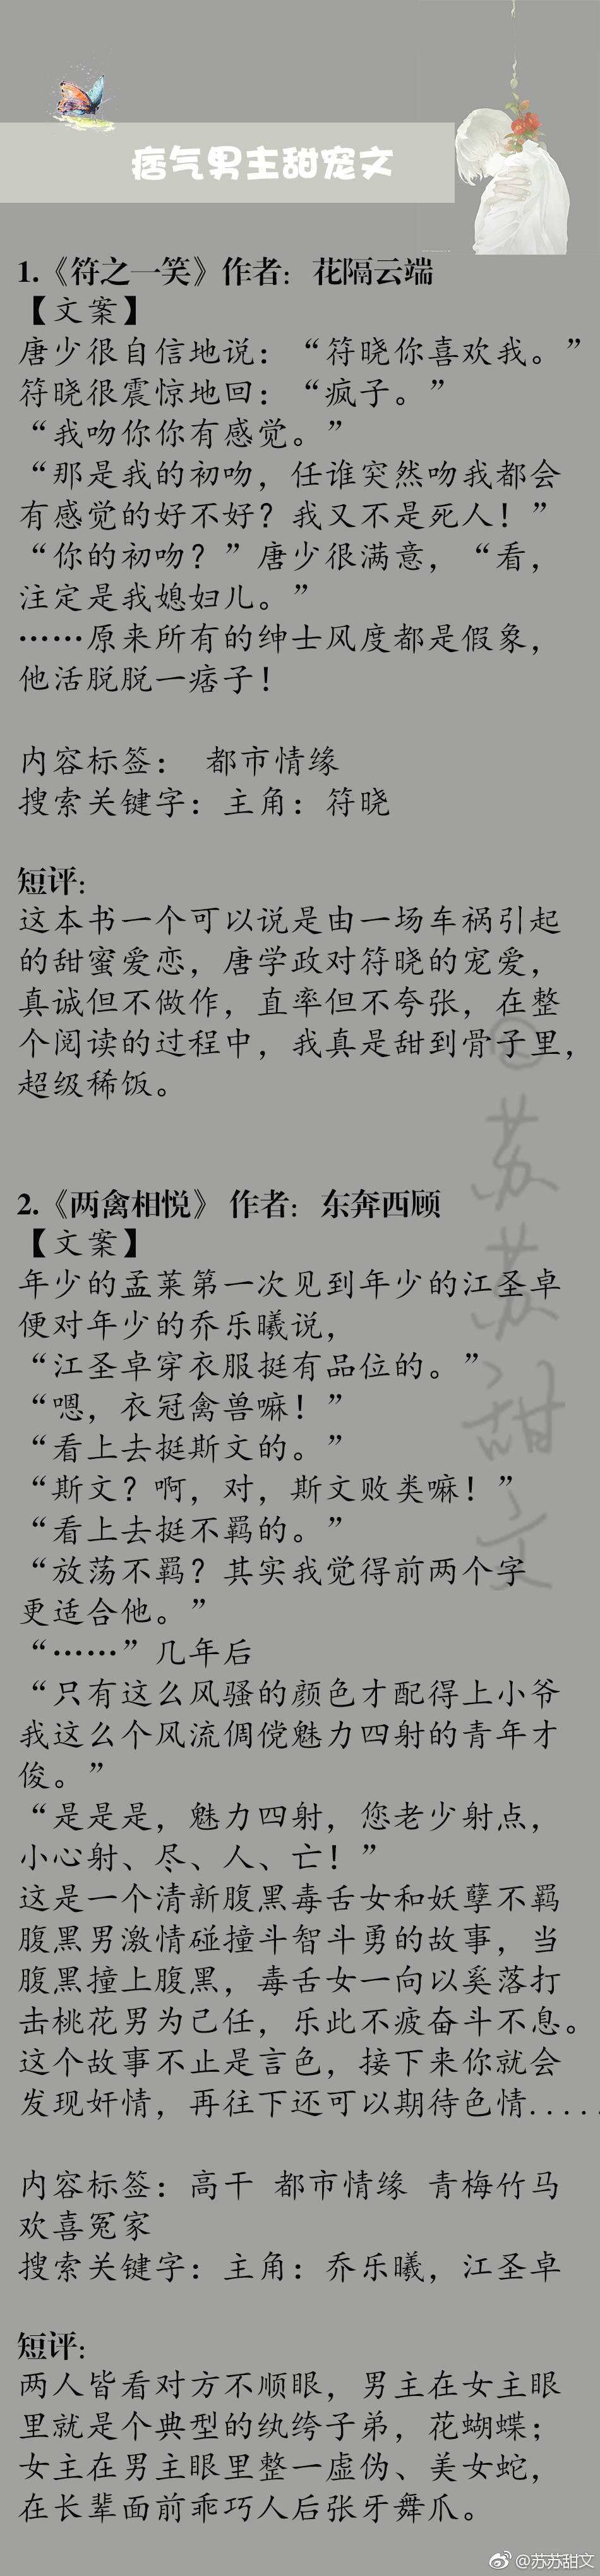 痞气男主甜宠文
1.《符之一笑》作者：花隔云端
【文案】
唐少很自信地说：“符晓你喜欢我。”
符晓很震惊地回：“疯子。”
“我吻你你有感觉。”
“那是我的初吻，任谁突然吻我都会
有感觉的好不好？我又不是死人！”
“你的初吻？”唐少很满意，“看，
注定是我媳妇儿。”
……原来所有的绅士风度都是假象，
他活脱脱一痞子！
内容标签： 都市情缘
搜索关键字：主角：符晓
短评：
这本书一个可以说是由一场车祸引起
的甜蜜爱恋，唐学政对符晓的宠爱，
真诚但不做作，直率但不夸张，在整
个阅读的过程中，我真是甜到骨子里，
超级稀饭。
2.《两禽相悦》 作者：东奔西顾
【文案】
年少的孟莱第一次见到年少的江圣卓
便对年少的乔乐曦说，
“江圣卓穿衣服挺有品位的。”
“嗯，衣冠禽兽嘛！”
“看上去挺斯文的。”
“斯文？啊，对，斯文败类嘛！”
“看上去挺不羁的。”
“放荡不羁？其实我觉得前两个字
更适合他。”
“……”几年后
“只有这么风骚的颜色才配得上小爷
我这么个风流倜傥魅力四射的青年才
俊。”
“是是是，魅力四射，您老少射点，
小心射、尽、人、亡！”
这是一个清新腹黑毒舌女和妖孽不羁
腹黑男激情碰撞斗智斗勇的故事，当
腹黑撞上腹黑，毒舌女一向以奚落打
击桃花男为己任，乐此不疲奋斗不息。
这个故事不止是言色，接下来你就会
发现奸情，再往下还可以期待色情.....
内容标签：高干 都市情缘 青梅竹马
欢喜冤家
搜索关键字：主角：乔乐曦，江圣卓
短评：
两人皆看对方不顺眼，男主在女主眼
里就是个典型的纨绔子弟，花蝴蝶；
女主在男主眼里整一虚伪、美女蛇，
在长辈面前乖巧人后张牙舞爪。
@苏苏甜文
@苏苏甜文